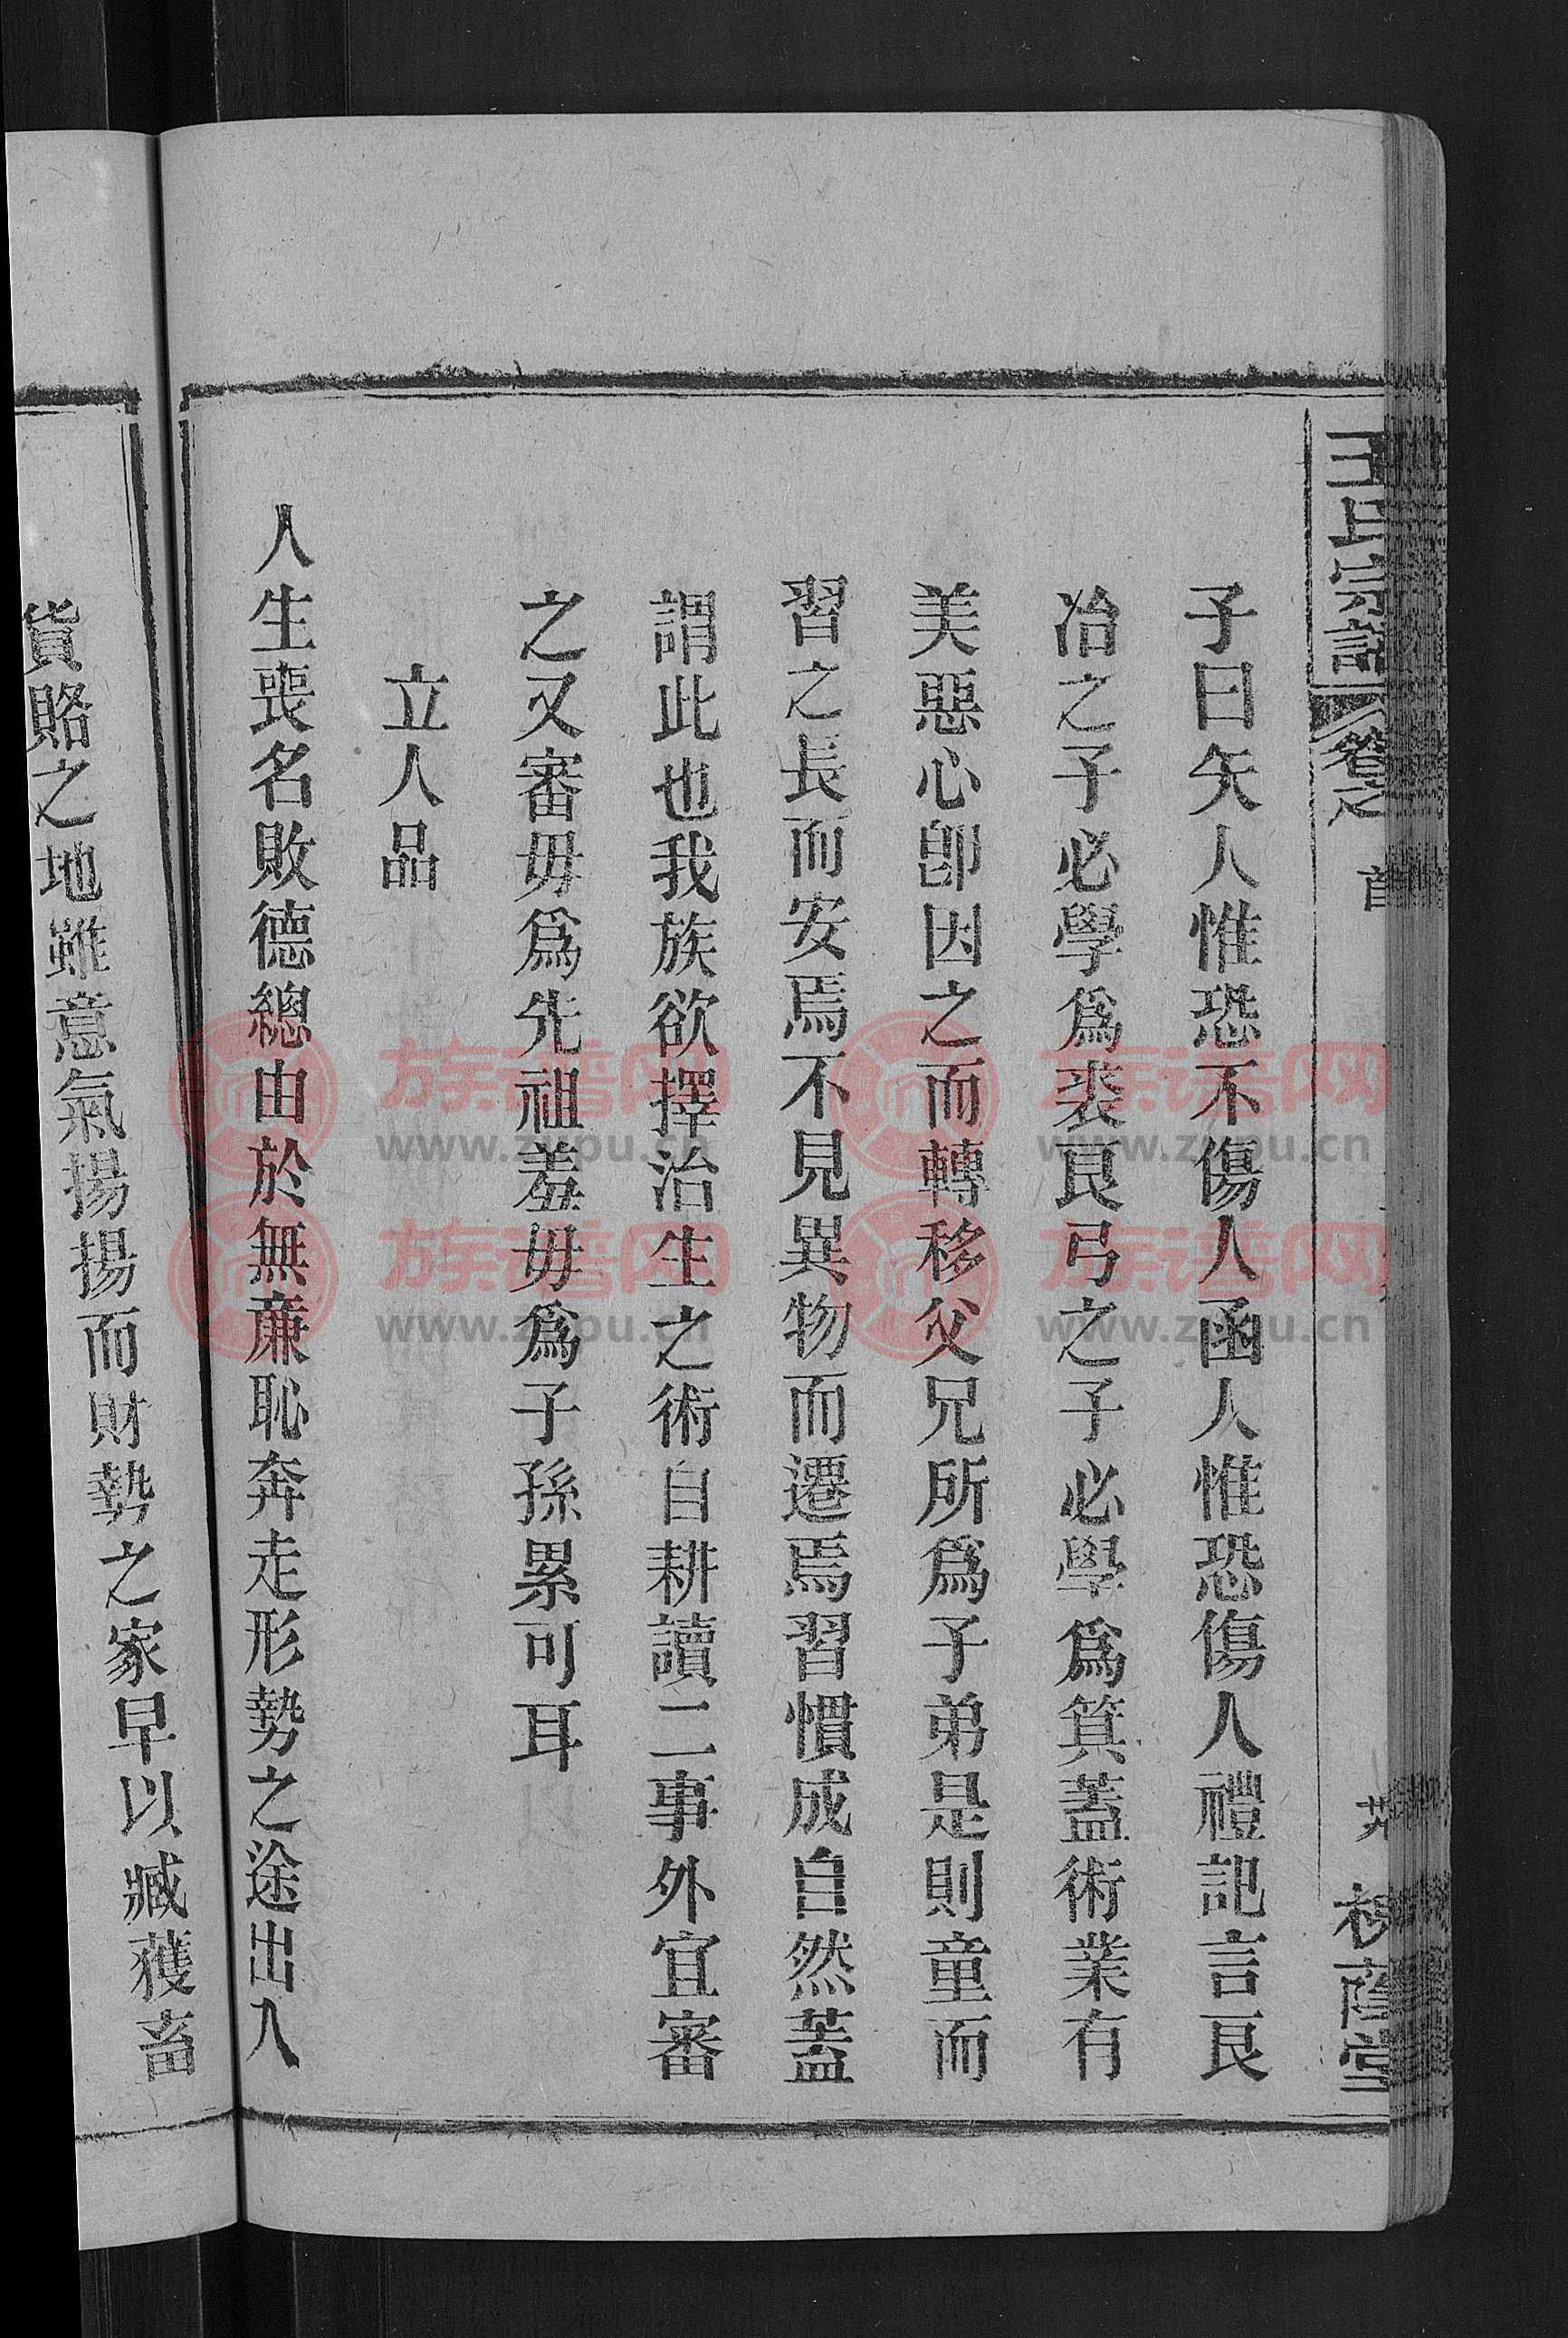 王氏宗譜 卷之 首 廿 蔭堂
子曰矢人惟恐不傷人函人惟恐傷人禮記言良
冶之子必學爲裘良弓之子必學爲箕蓋術業有
美惡心卽因之而轉移父兄所爲子弟是則童而
習之長而安焉不見異物而遷焉習慣成自然蓋
謂此也我族欲擇治生之術自耕讀二事外宜審
之又審毋爲先祖羞毋爲子孫累可耳
立人品
人生喪名敗德總由於無亷恥奔走形勢之途出入
貨賂之地雖意氣揚揚而財勢之家早以臧獲畜
族谱网 族谱网
www.zupu.cn www.zupu.cn
族谱网 族谱网
www.zupu.cn www.zupu.cn